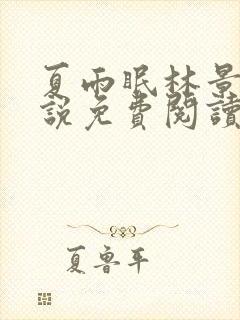 夏雨眠林景
說免費閱讀
夏魯平